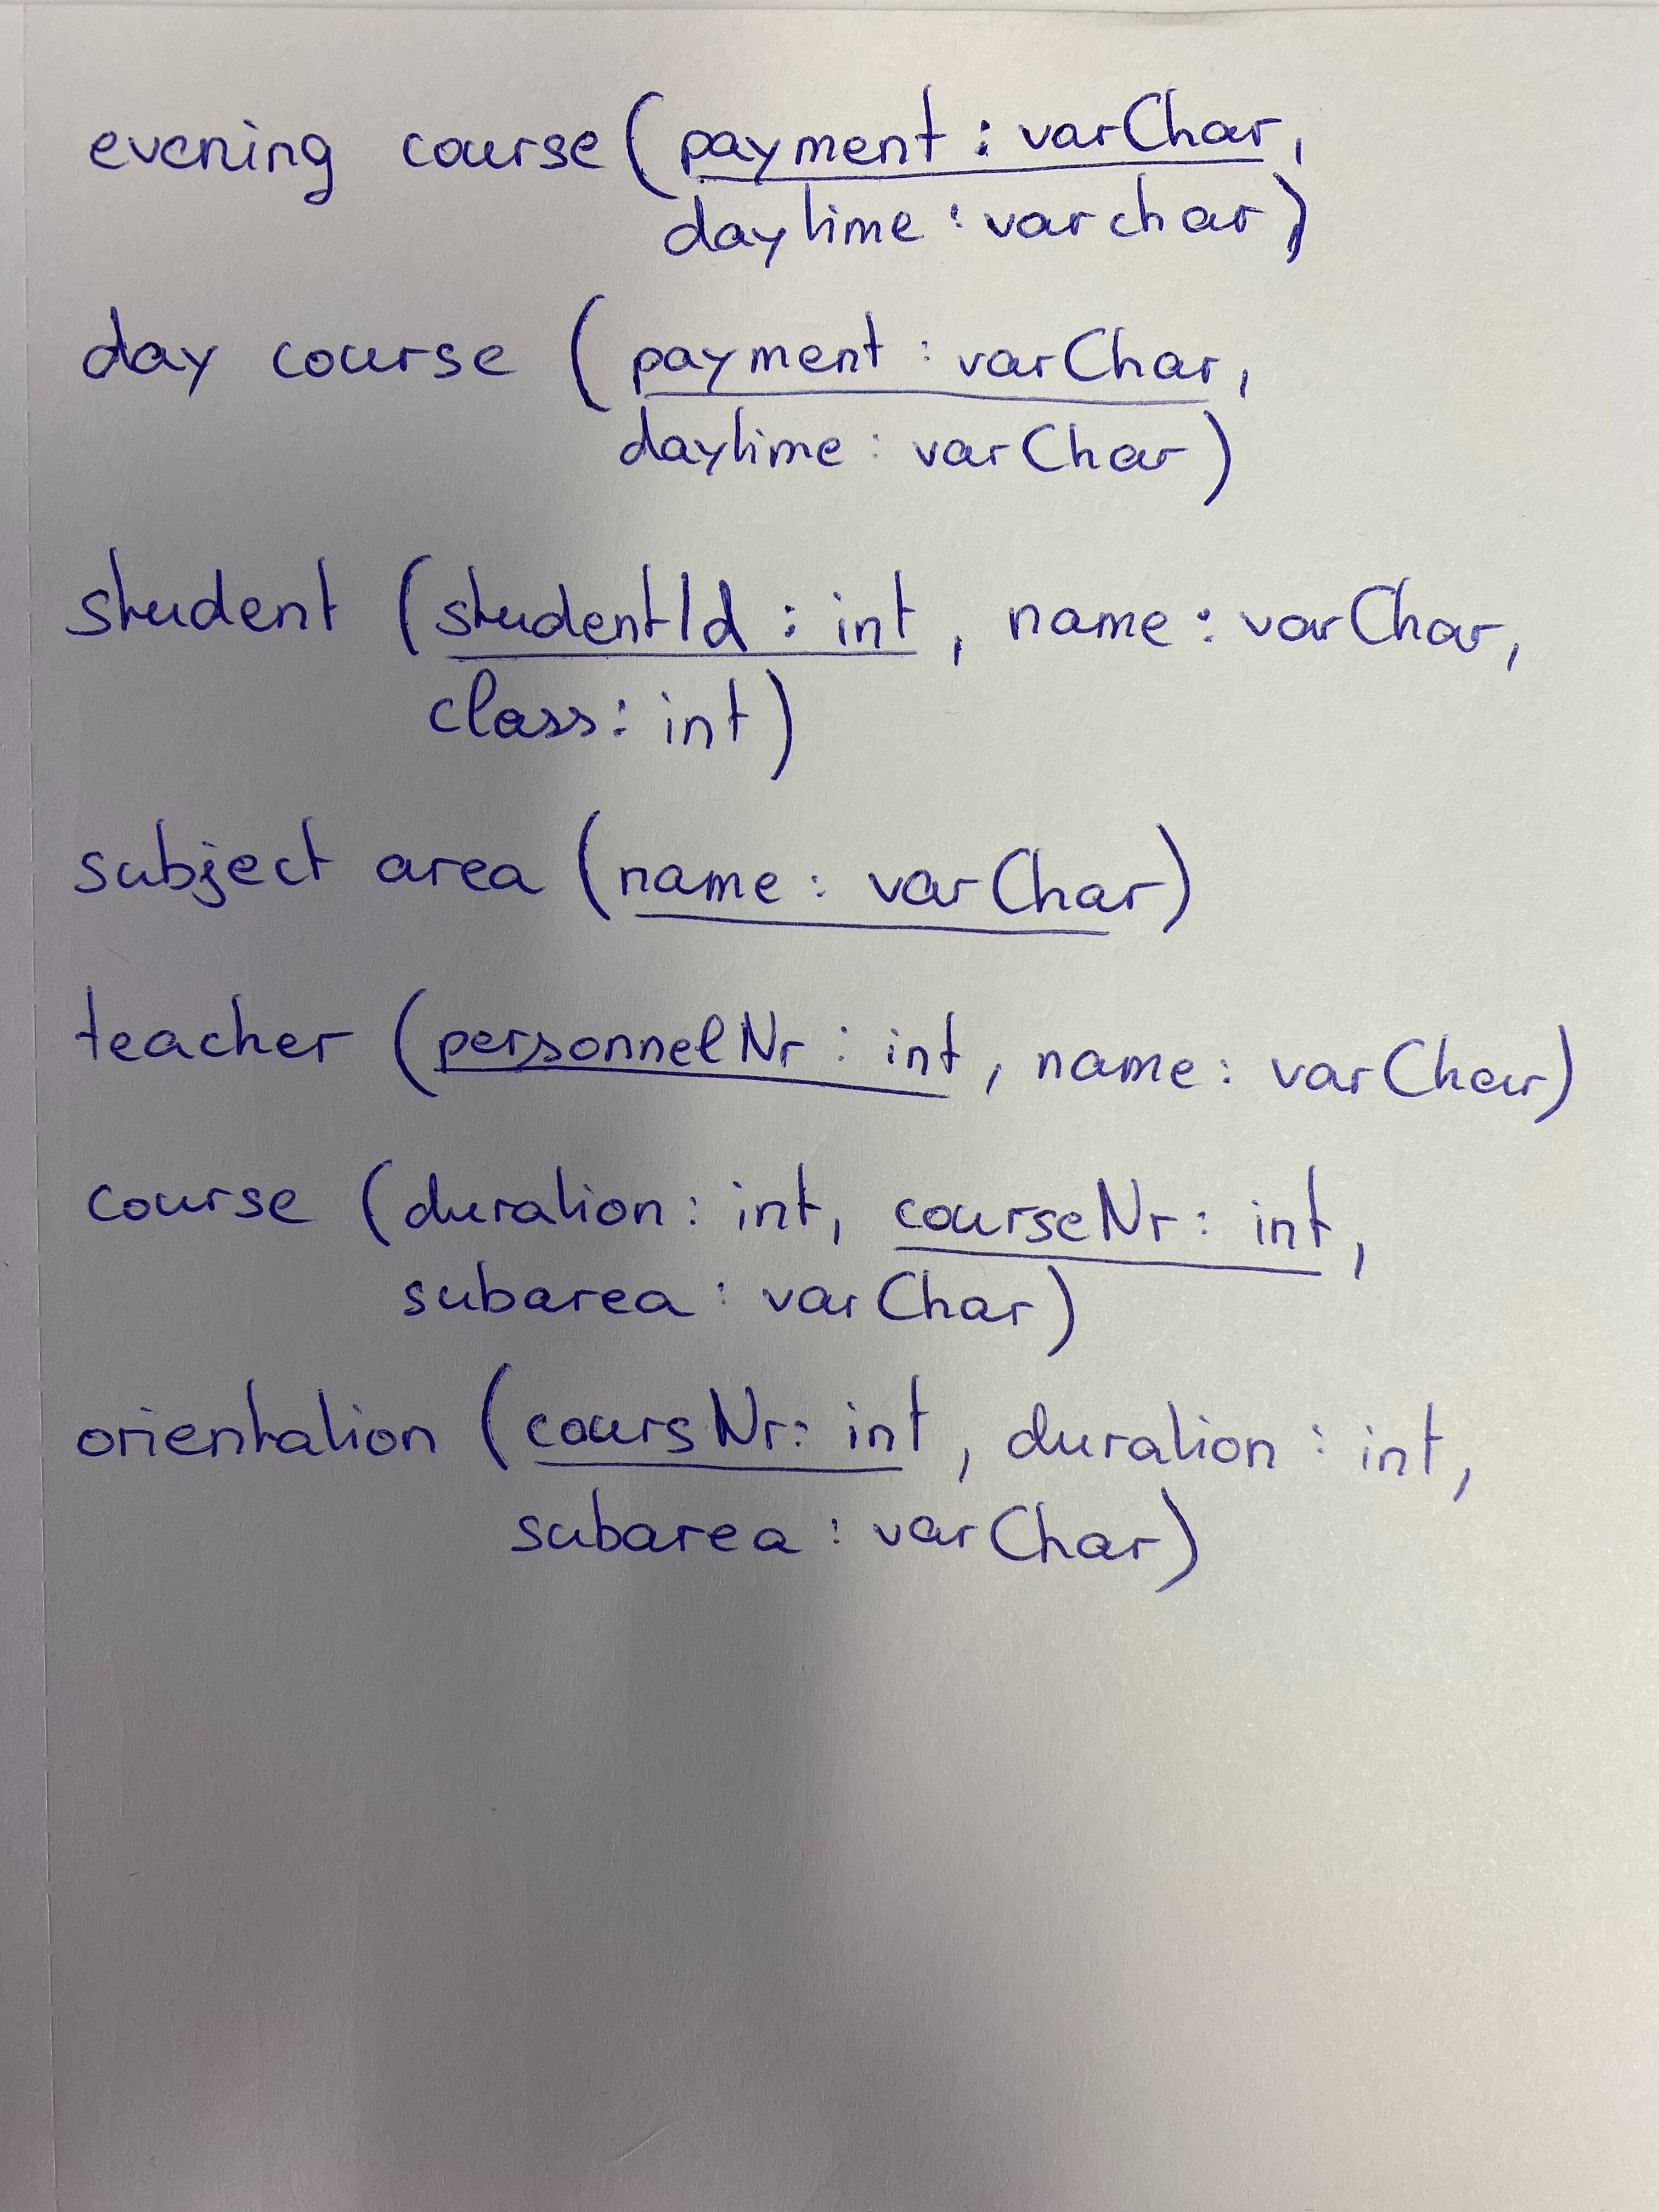 evening course (payment : varChar,
daytime : varchar)
day course (payment : varChar,
daytime : varChar)
student (studentId : int, name : varChar,
class : int)
subject area (name : varChar)
teacher (personnelNr : int, name : varChar)
course (duration : int, courseNr : int,
subarea : varChar)
orientation (coursNr : int, duration : int,
subarea : varChar)